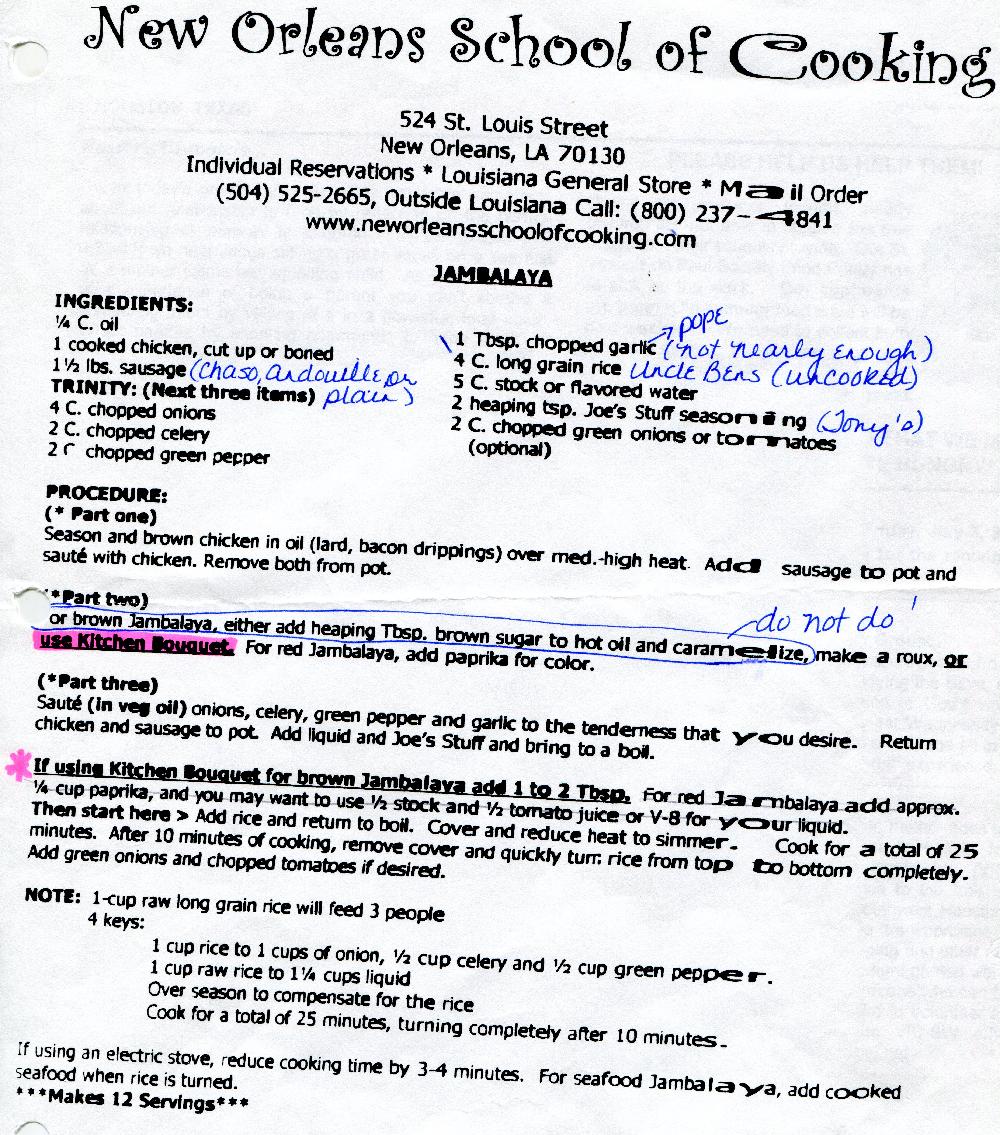 New Orleans School of Cooking
524 St. Louis Street
New Orleans, LA 70130
Individual Reservations * Louisiana General Store * Mail Order
(504) 525-2665, Outside Louisiana Call: (800) 237-4841
www.neworleansschoolofcooking.com
JAMBALAYA
INGREDIENTS:
¼ C. oil
1 cooked chicken, cut up or boned
1 ½ lbs. sausage (Chaso, andouille or
plain)
TRINITY: (Next three items)
4 C. chopped onions
2 C. chopped celery
2 C chopped green pepper
POPE
1 Tbsp. chopped garlic (not nearly enough)
4 C. long grain rice Uncle Bens (uncooked)
5 C. stock or flavored water
2 heaping tsp. Joe's Stuff seasoning (Tony's)
2 C. chopped green onions or tomatoes
(optional)
PROCEDURE:
(* Part one)
Season and brown chicken in oil (lard, bacon drippings) over med.-high heat. Add sausage to pot and
sauté with chicken. Remove both from pot.
(*Part two)
do not do
or brown Jambalaya, either add heaping Tbsp. brown sugar to hot oil and caramelize, make a roux, or
use Kitchen Bouquet. For red Jambalaya, add paprika for color.
(*Part three)
Sauté (in veg oil) onions, celery, green pepper and garlic to the tenderness that you desire. Return
chicken and sausage to pot. Add liquid and Joe's Stuff and bring to a boil.
If using Kitchen Bouquet for brown Jambalaya add 1 to 2 Tbsp. For red Jambalaya add approx.
¼ cup paprika, and you may want to use ½ stock and ½ tomato juice or V-8 for your liquid.
Then start here > Add rice and return to boil. Cover and reduce heat to simmer. Cook for a total of 25
minutes. After 10 minutes of cooking, remove cover and quickly turn rice from top to bottom completely.
Add green onions and chopped tomatoes if desired.
NOTE: 1-cup raw long grain rice will feed 3 people
4 keys:
1 cup rice to 1 cups of onion, ½ cup celery and ½ cup green pepper.
1 cup raw rice to 1 ¼ cups liquid
Over season to compensate for the rice
Cook for a total of 25 minutes, turning completely after 10 minutes.
If using an electric stove, reduce cooking time by 3-4 minutes. For seafood Jambalaya, add cooked
seafood when rice is turned.
***Makes 12 Servings***